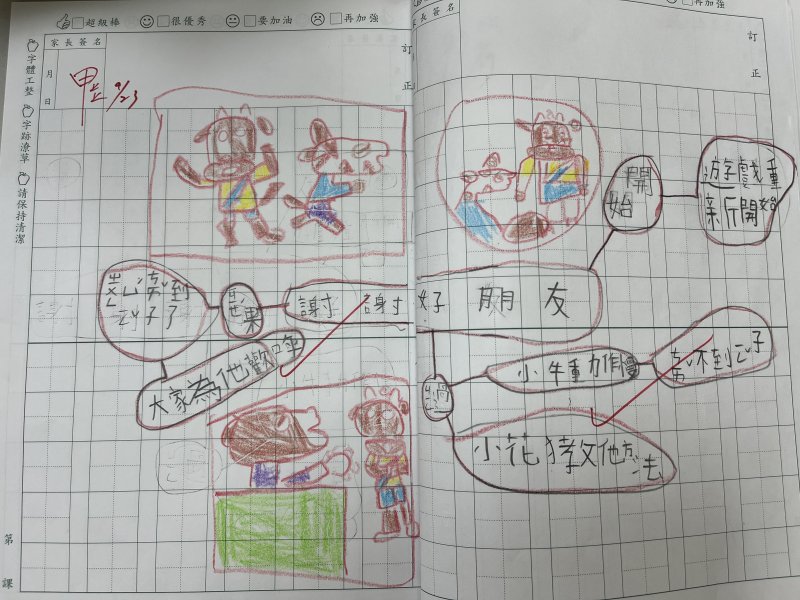 超級棒 很優秀 要加油 再加強
再加強
家長簽名
月
日
訂
正
字體工整
字跡潦草
請保持清潔
甲上 9/23
家長簽名
訂
正
開
始
遊字戲重
新斤開始
好 朋 友
謝 謝
果
到
子了
大家為他歡呼
過
小牛重力作慢
不到 子
小花 教他方法
第
課